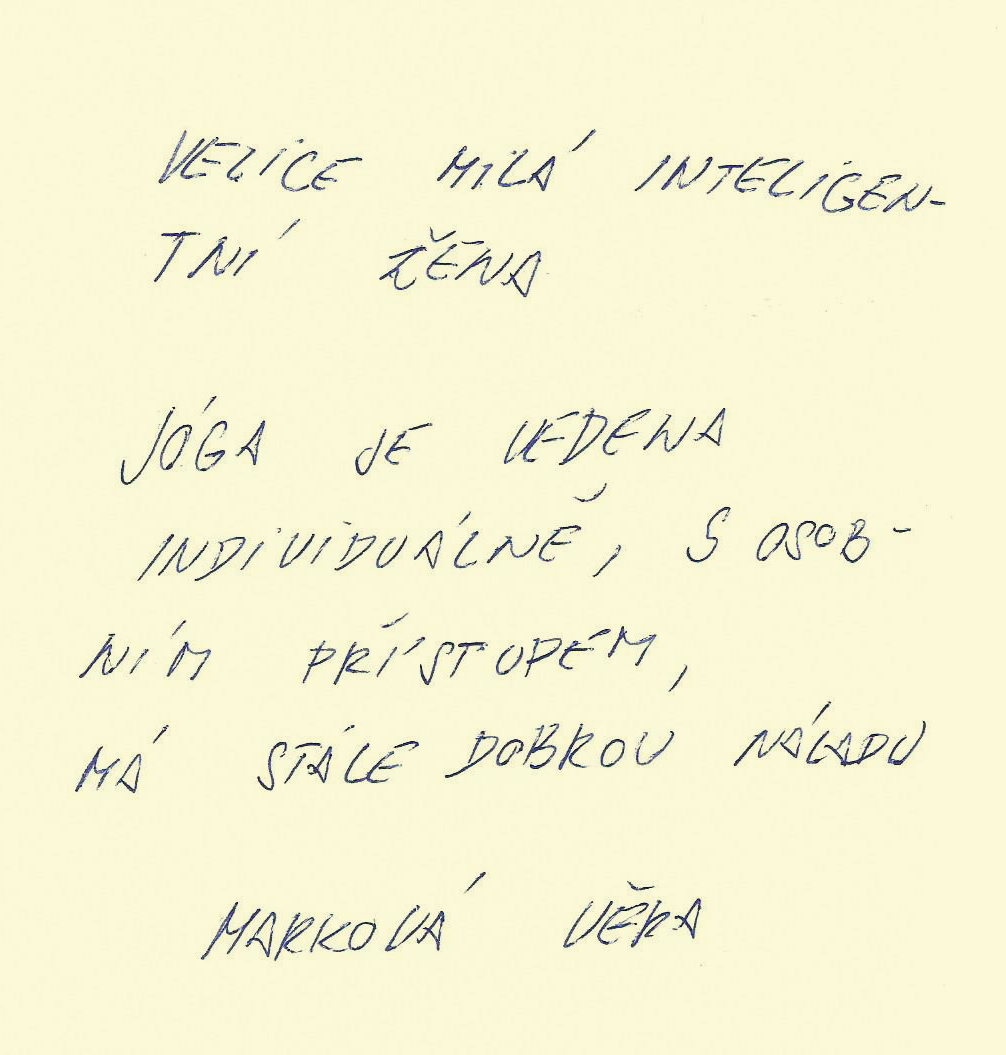 VELICE MILÁ INTELIGEN-
TNÍ ŽENA
JÓGA JE VEDENA
INDIVIDUÁLNĚ, S OSOB-
NÍM PŘÍSTUPEM,
MÁ STÁLE DOBROU NÁLADU
MARKOVÁ VĚRA